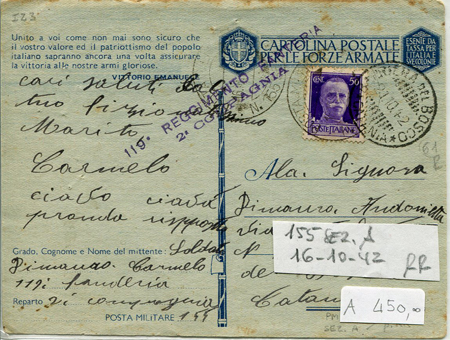 I23
Unito a voi come non mai sono sicuro che
il vostro valore ed il patriottismo del popolo
italiano sapranno ancora una volta assicurare
la vittoria alle nostre armi gloriose.
VITTORIO EMANUELE
CARTOLINA POSTALE
PER LE FORZE ARMATE
ESENTE DA
TASSA PER
L'ITALIA E
VE COLONIE
119° REGGIMENTO FANTERIA
2ª COMPAGNIA
CENT. 50
POSTE ITALIANE
BOSCO
cari saluti
tuo
Marito
Carmelo
ciao ciao
pronda risposta
Ala Signora
Dimauro Andonietta
155 SEZ. A
16-10-42 RR
A 450,00
61
R
Grado, Cognome e Nome del mittente: Soldato
Dimauro Carmelo
111i fanderia
Reparto 2i compagnia
POSTA MILITARE 155
N
de
Catan
PM
SEZ. A